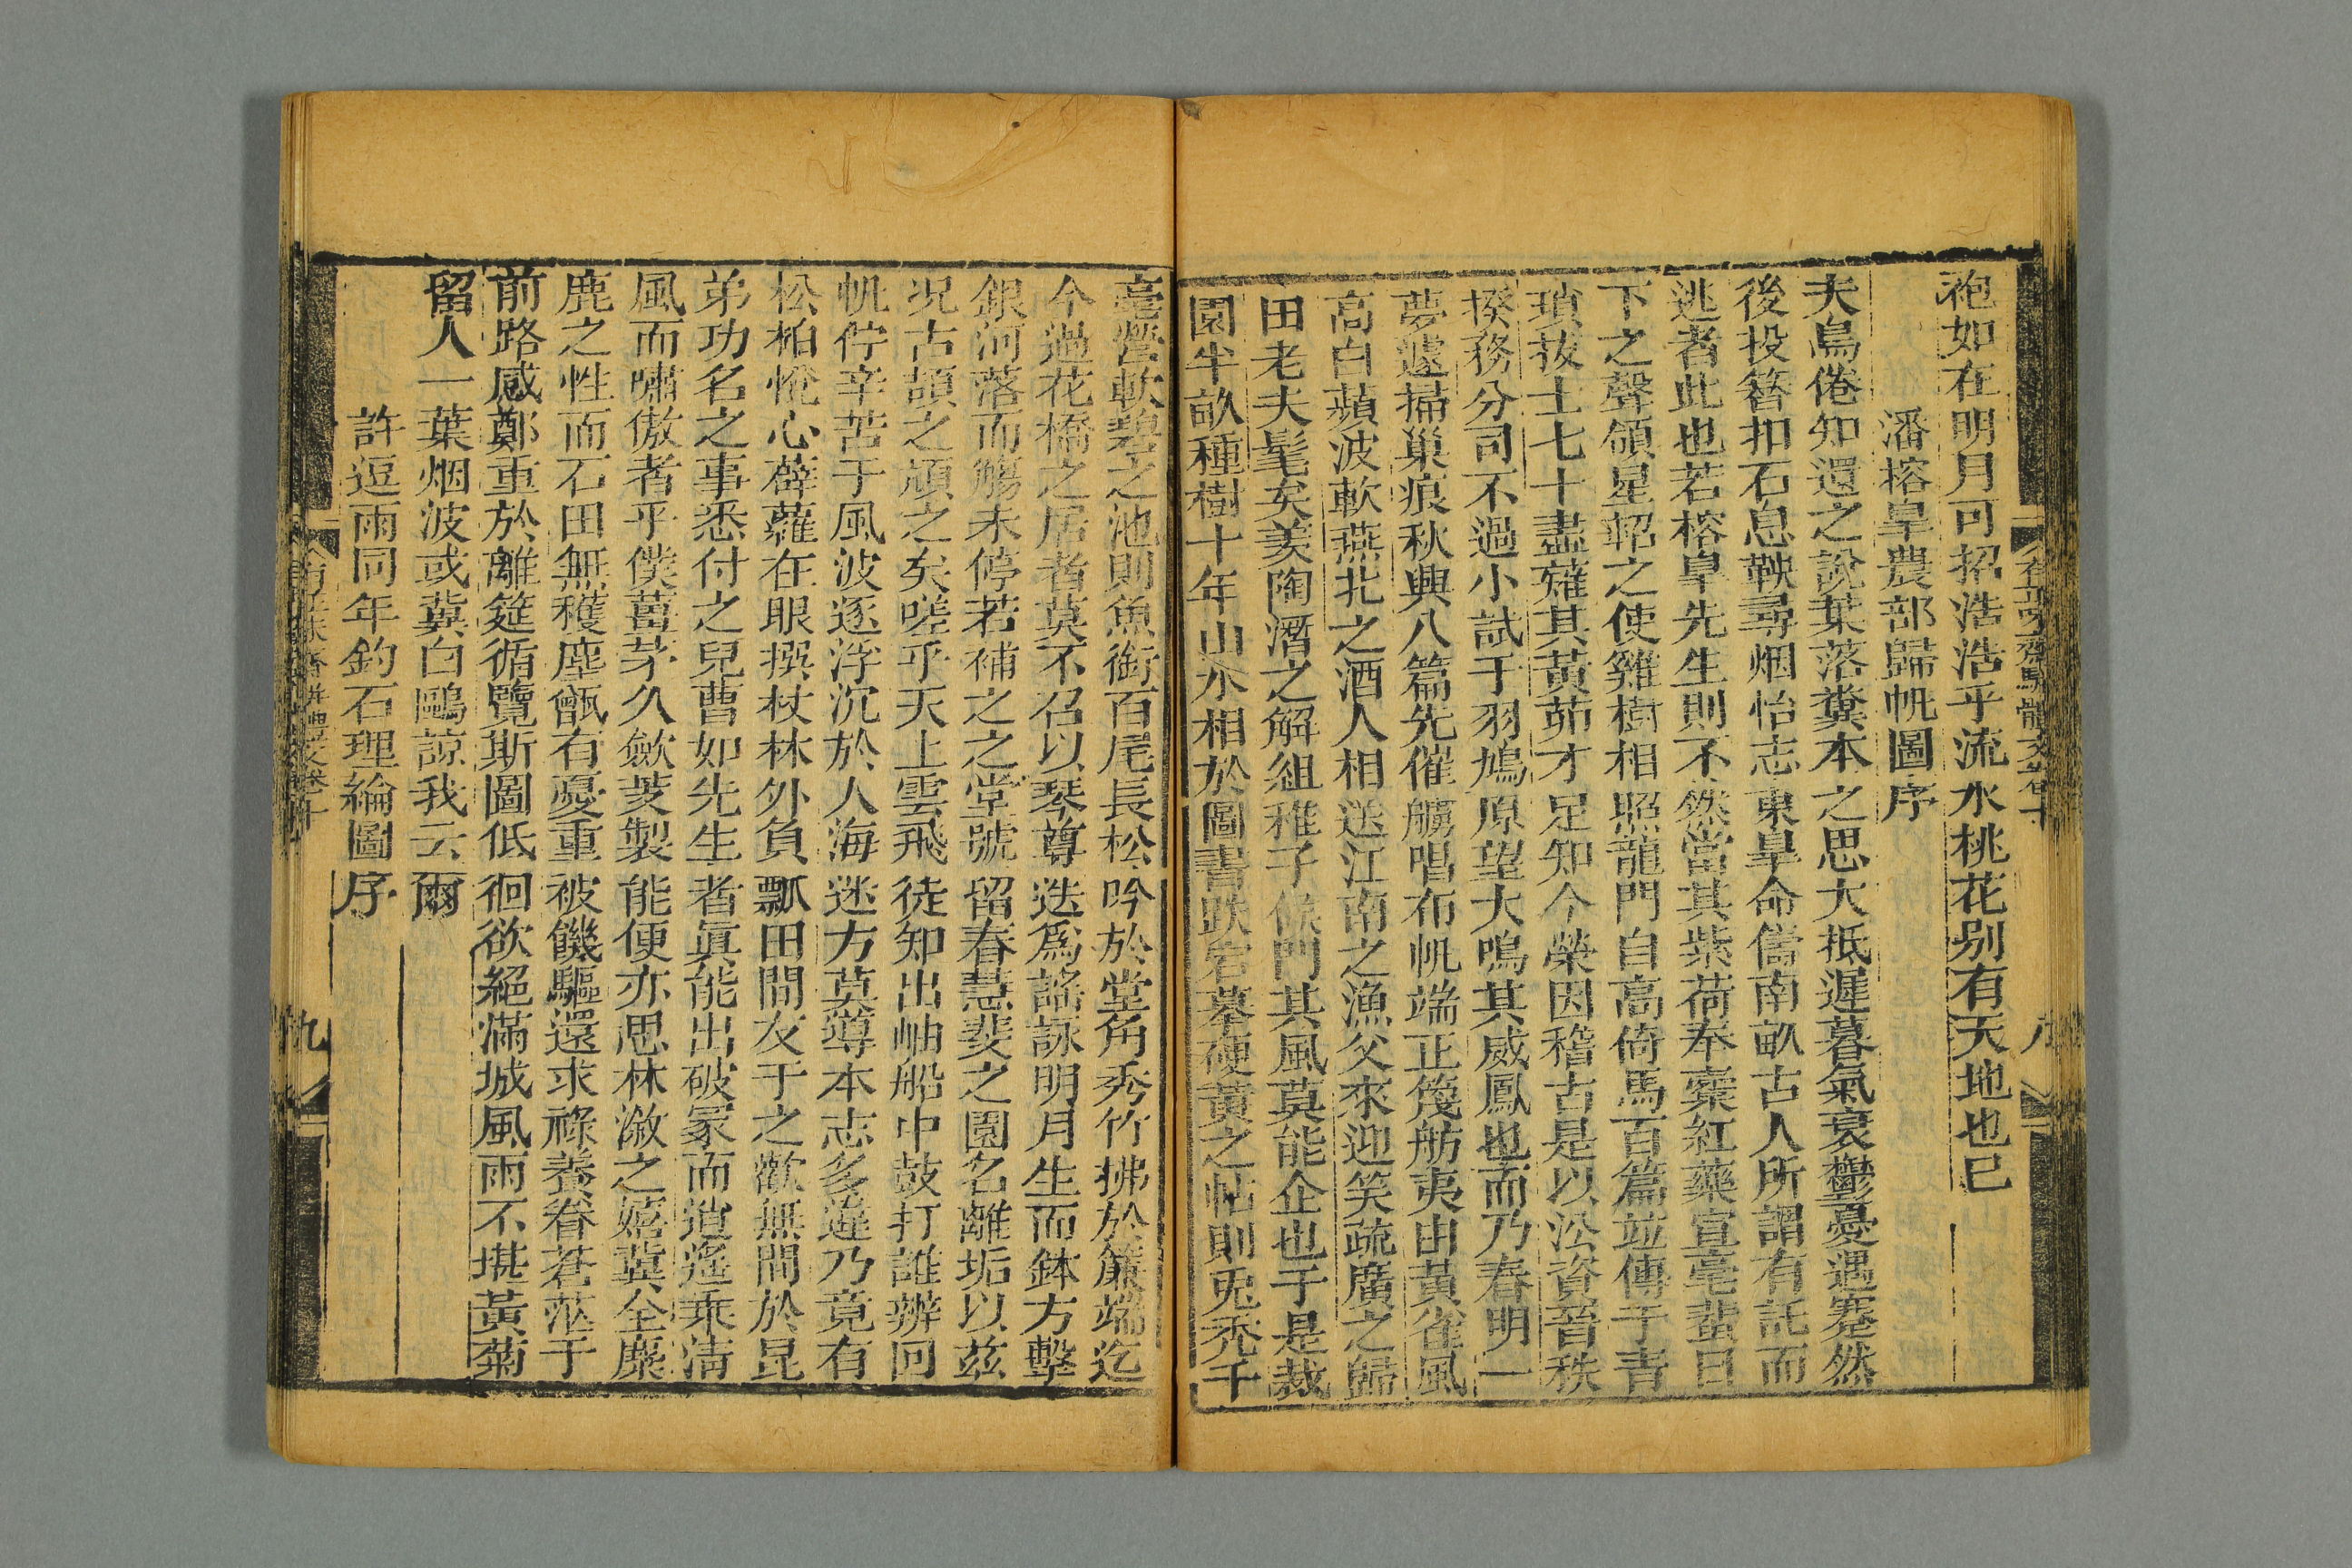 袍如在明月可招浩浩乎流水桃花别有天地也已
潘榕皐農部歸帆圖序
夫鳥倦知還之說葉落糞本之思大抵遲暮氣衰鬱憂遇蹇然
後投簪扣石息鞅尋烟怡志東皐命儔南畝古人所謂有託而
逃者此也若榕皐先生則不然當其紫荷奉橐紅藥宣毫蜚日
下之聲領星軺之使雞樹相照龍門自高倚馬百篇並傳于青
瑣拔士七十盡薙其黃茆才足知今榮因稽古是以㳂資晉秩
揆務分司不過小試于羽鳩原望大鳴其威鳳也而乃春明一
夢遽掃巢痕秋興八篇先催艣唱布帆端正筏舫夷由黃雀風
高白蘋波軟燕北之酒人相送江南之漁父來迎笑疏廣之歸
田老夫髦矣羨陶潛之解組稚子候門其風莫能企也于是裁
園半畝種樹十年山水相於圖書跌宕摹硬黃之帖則兎禿千
毫營軟碧之池則魚銜百尾長松吟於堂角秀竹拂於簾端迄
今過花橋之居者莫不召以琴尊迭爲謠詠明月生而鉢方擊
銀河落而觴未停若補之之堂號留春慧斐之園名離垢以茲
况古頡之頏之矣嗟乎天上雲飛徒知出岫船中鼓打誰辨回
帆佇辛苦于風波逐浮沉於人海迷方莫導本志多違乃竟有
松柏恱心薜蘿在眼撰杖林外負瓢田間友于之歡無間於昆
弟功名之事悉付之兒曹如先生者眞能出破冢而逍遙乘淸
風而嘯傲者乎僕薔茅久歛芰製能便亦思林潊之嬉冀全麋
鹿之性而石田無穫塵甑有憂重被饑驅還求祿養眷蒼茫于
前路感鄭重於離筵循覽斯圖低徊欲絕滿城風雨不堪黃菊
留人一葉烟波或冀白鷗諒我云爾
許逗雨同年釣石理綸圖序
九